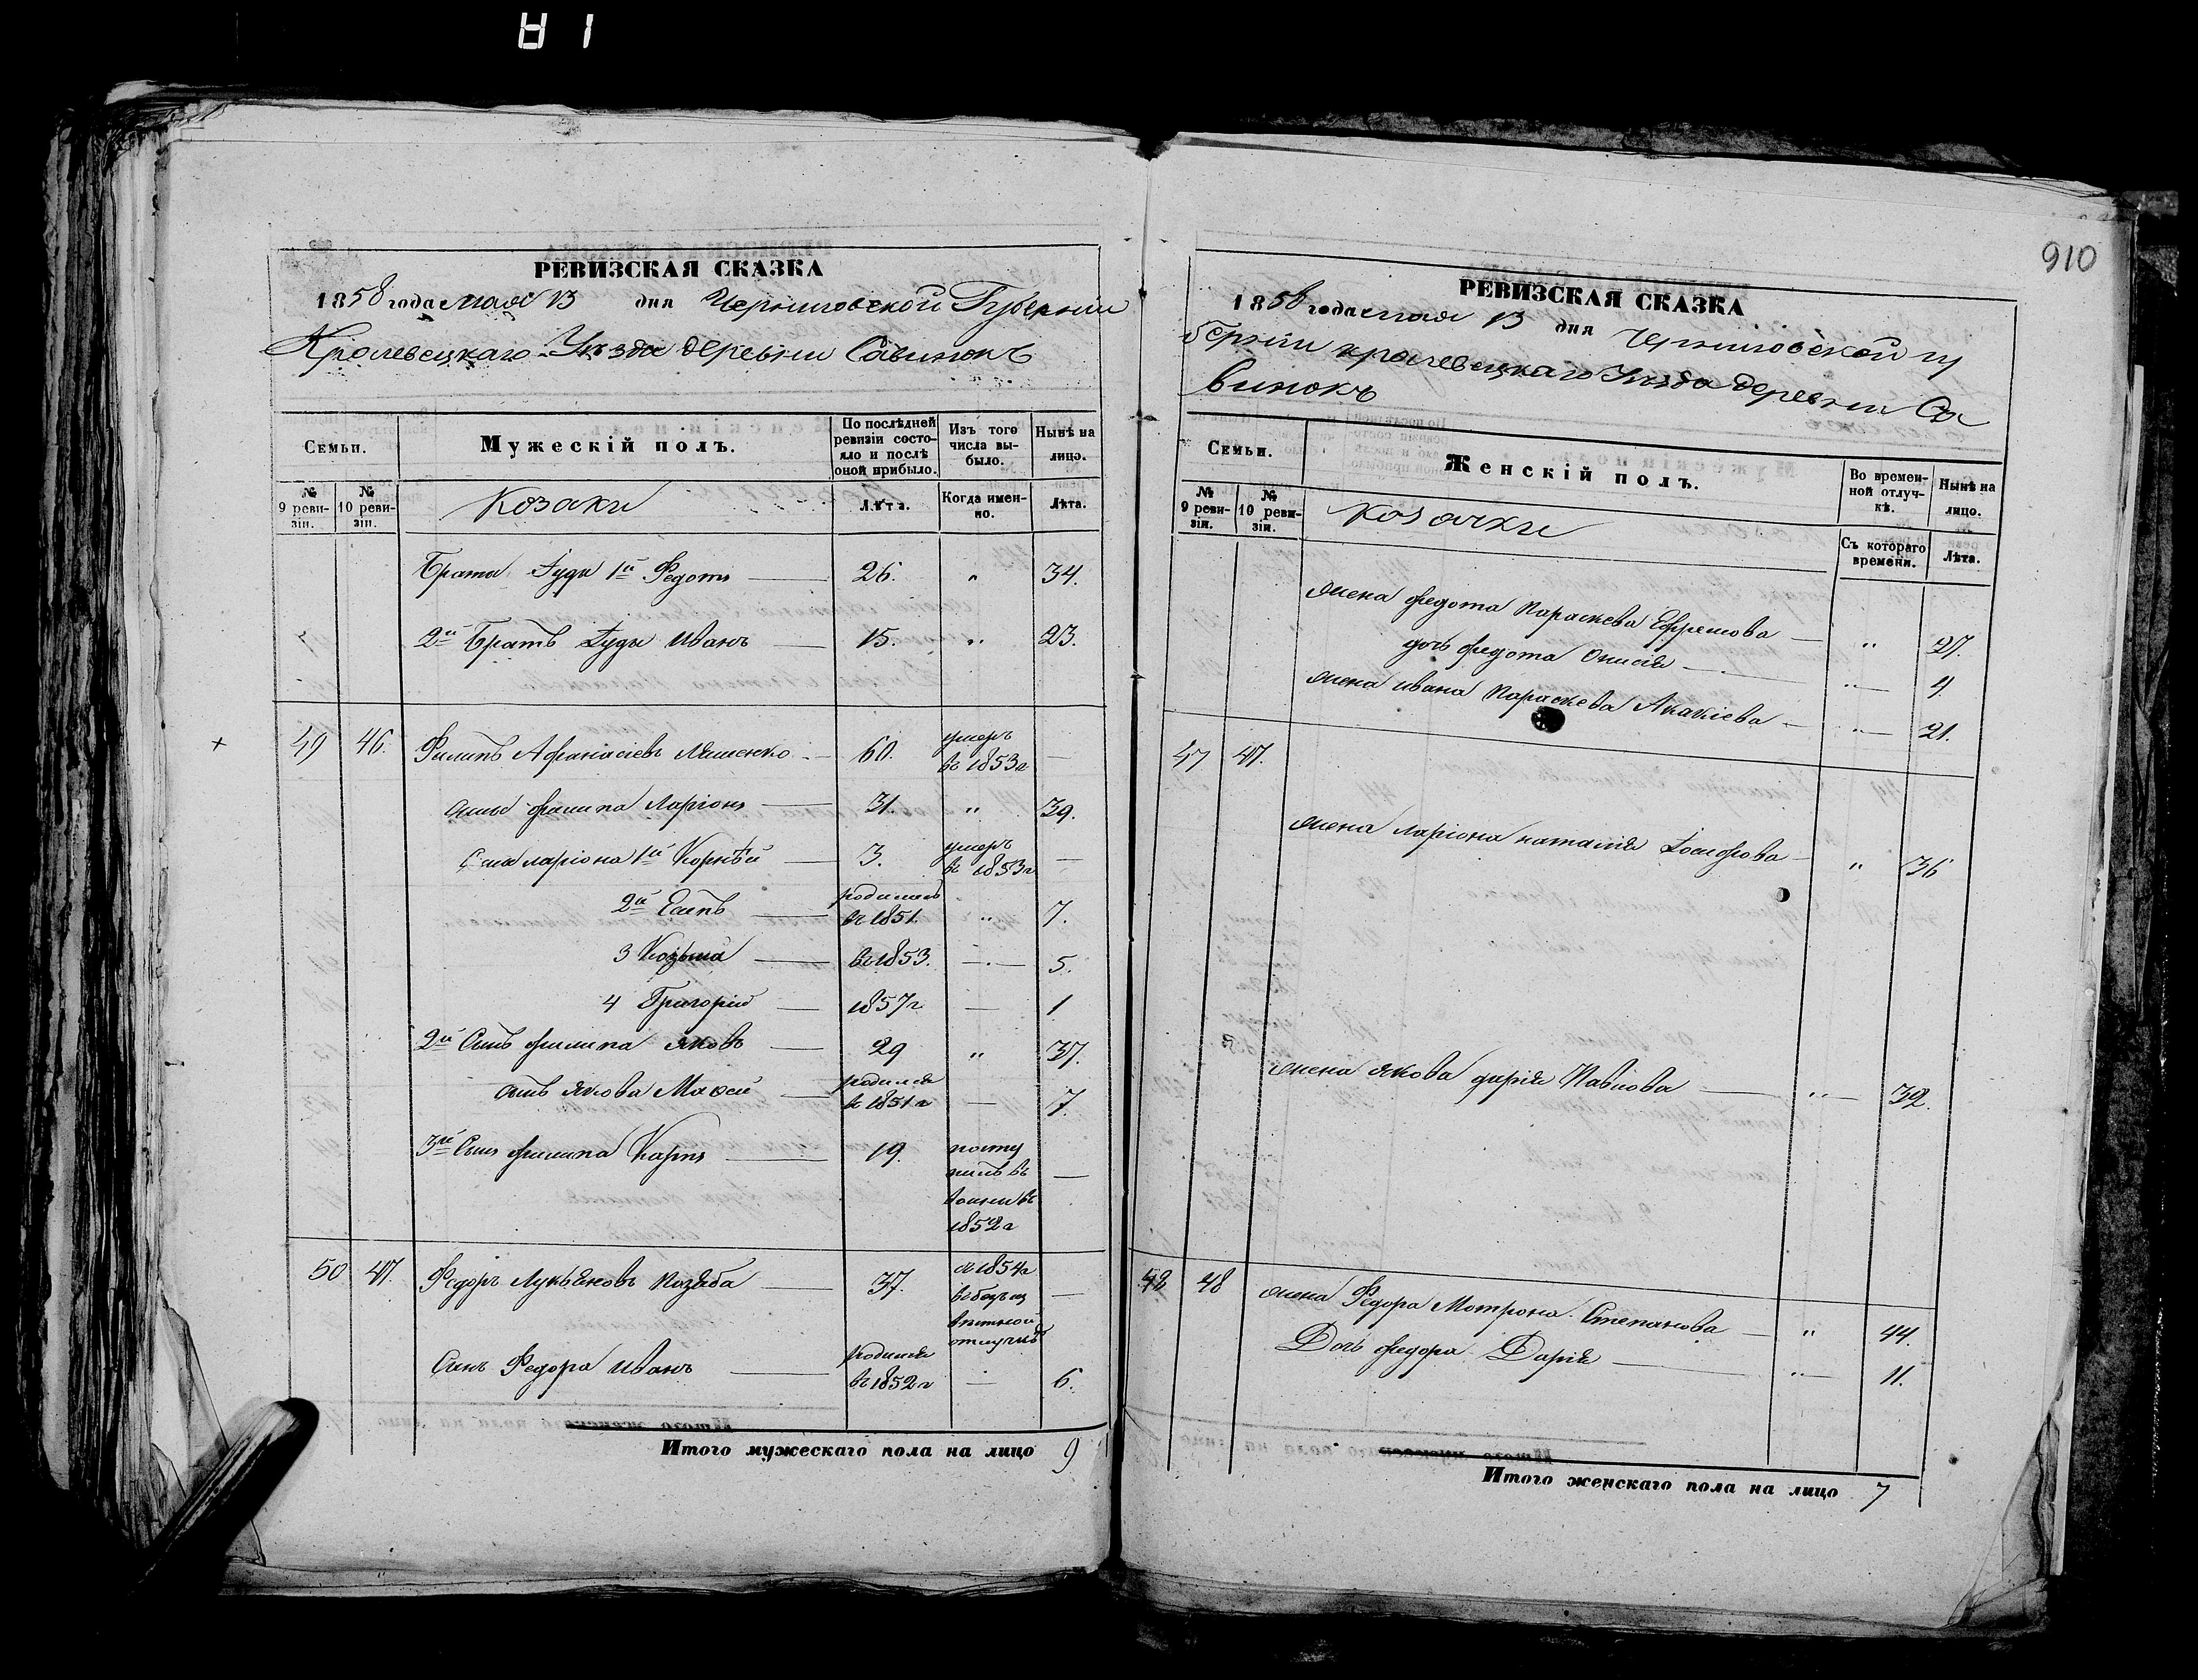 910
РЕВИЗСКАЯ СКАЗКА
1858 года мая 13 дня Черниговской Губернии
Кролевецкаго Уѣзда деревни Савинокъ
Семьи.
Мужескій полъ.
По послѣдней ревизіи состояло и послѣ оной прибыло.
Изъ того числа выбыло.
Нынѣ на лицо.
№ 9 ревизіи.
№ 10 ревизіи.
Козаки
Лѣта.
Когда именно.
Лѣта.
Брата Іуды 1й Федотъ 26. " 34.
2й Братъ Іуды Иванъ 15. " 23.
49 46. Филипъ Афанасіевъ Ляшенко 60. умеръ въ 1853г —
Сынъ Филипа Ларіонъ 31. " 39.
Сына Ларіона 1й Корнѣй 3. умеръ въ 1853г —
2й Есипъ родился въ 1851. " 7.
3 Козьма въ 1853. — 5.
4 Григорій 1857г — 1
2й Сынъ Филипа Яковъ 29 " 37.
Сынъ Якова Моѵсей родился въ 1851г — 7.
3й Сынъ Филипа Карпъ 19. посту
пилъ въ
воины въ
1852г —
50 47. Федоръ Лукьяновъ 37. съ 1854г
отлучкѣ —
Сынъ Федора Иванъ родился въ 1852г — 6.
Итого мужескаго пола на лицо 9
РЕВИЗСКАЯ СКАЗКА
1858 года мая 13 дня Черниговской гу
берніи Кролевецкаго Уѣзда деревни Са
винокъ
Семьи.
Женскій полъ.
Во временной отлучкѣ.
Нынѣ на лицо.
№ 9 ревизіи.
№ 10 ревизіи.
Козачки
Съ котораго времени.
Лѣта.
жена Федота Параскева Ефремова " 27.
дочь Федота Онисія " 4.
жена Ивана Параскева Акакіева " 21.
47 47.
жена Ларіона Наталія Іосифова " 36
жена Якова Дарія Павлова " 32.
48 48 жена Федора Мотрона Степанова " 44.
Дочь Федора Дарія " 11.
Итого женскаго пола на лицо 7